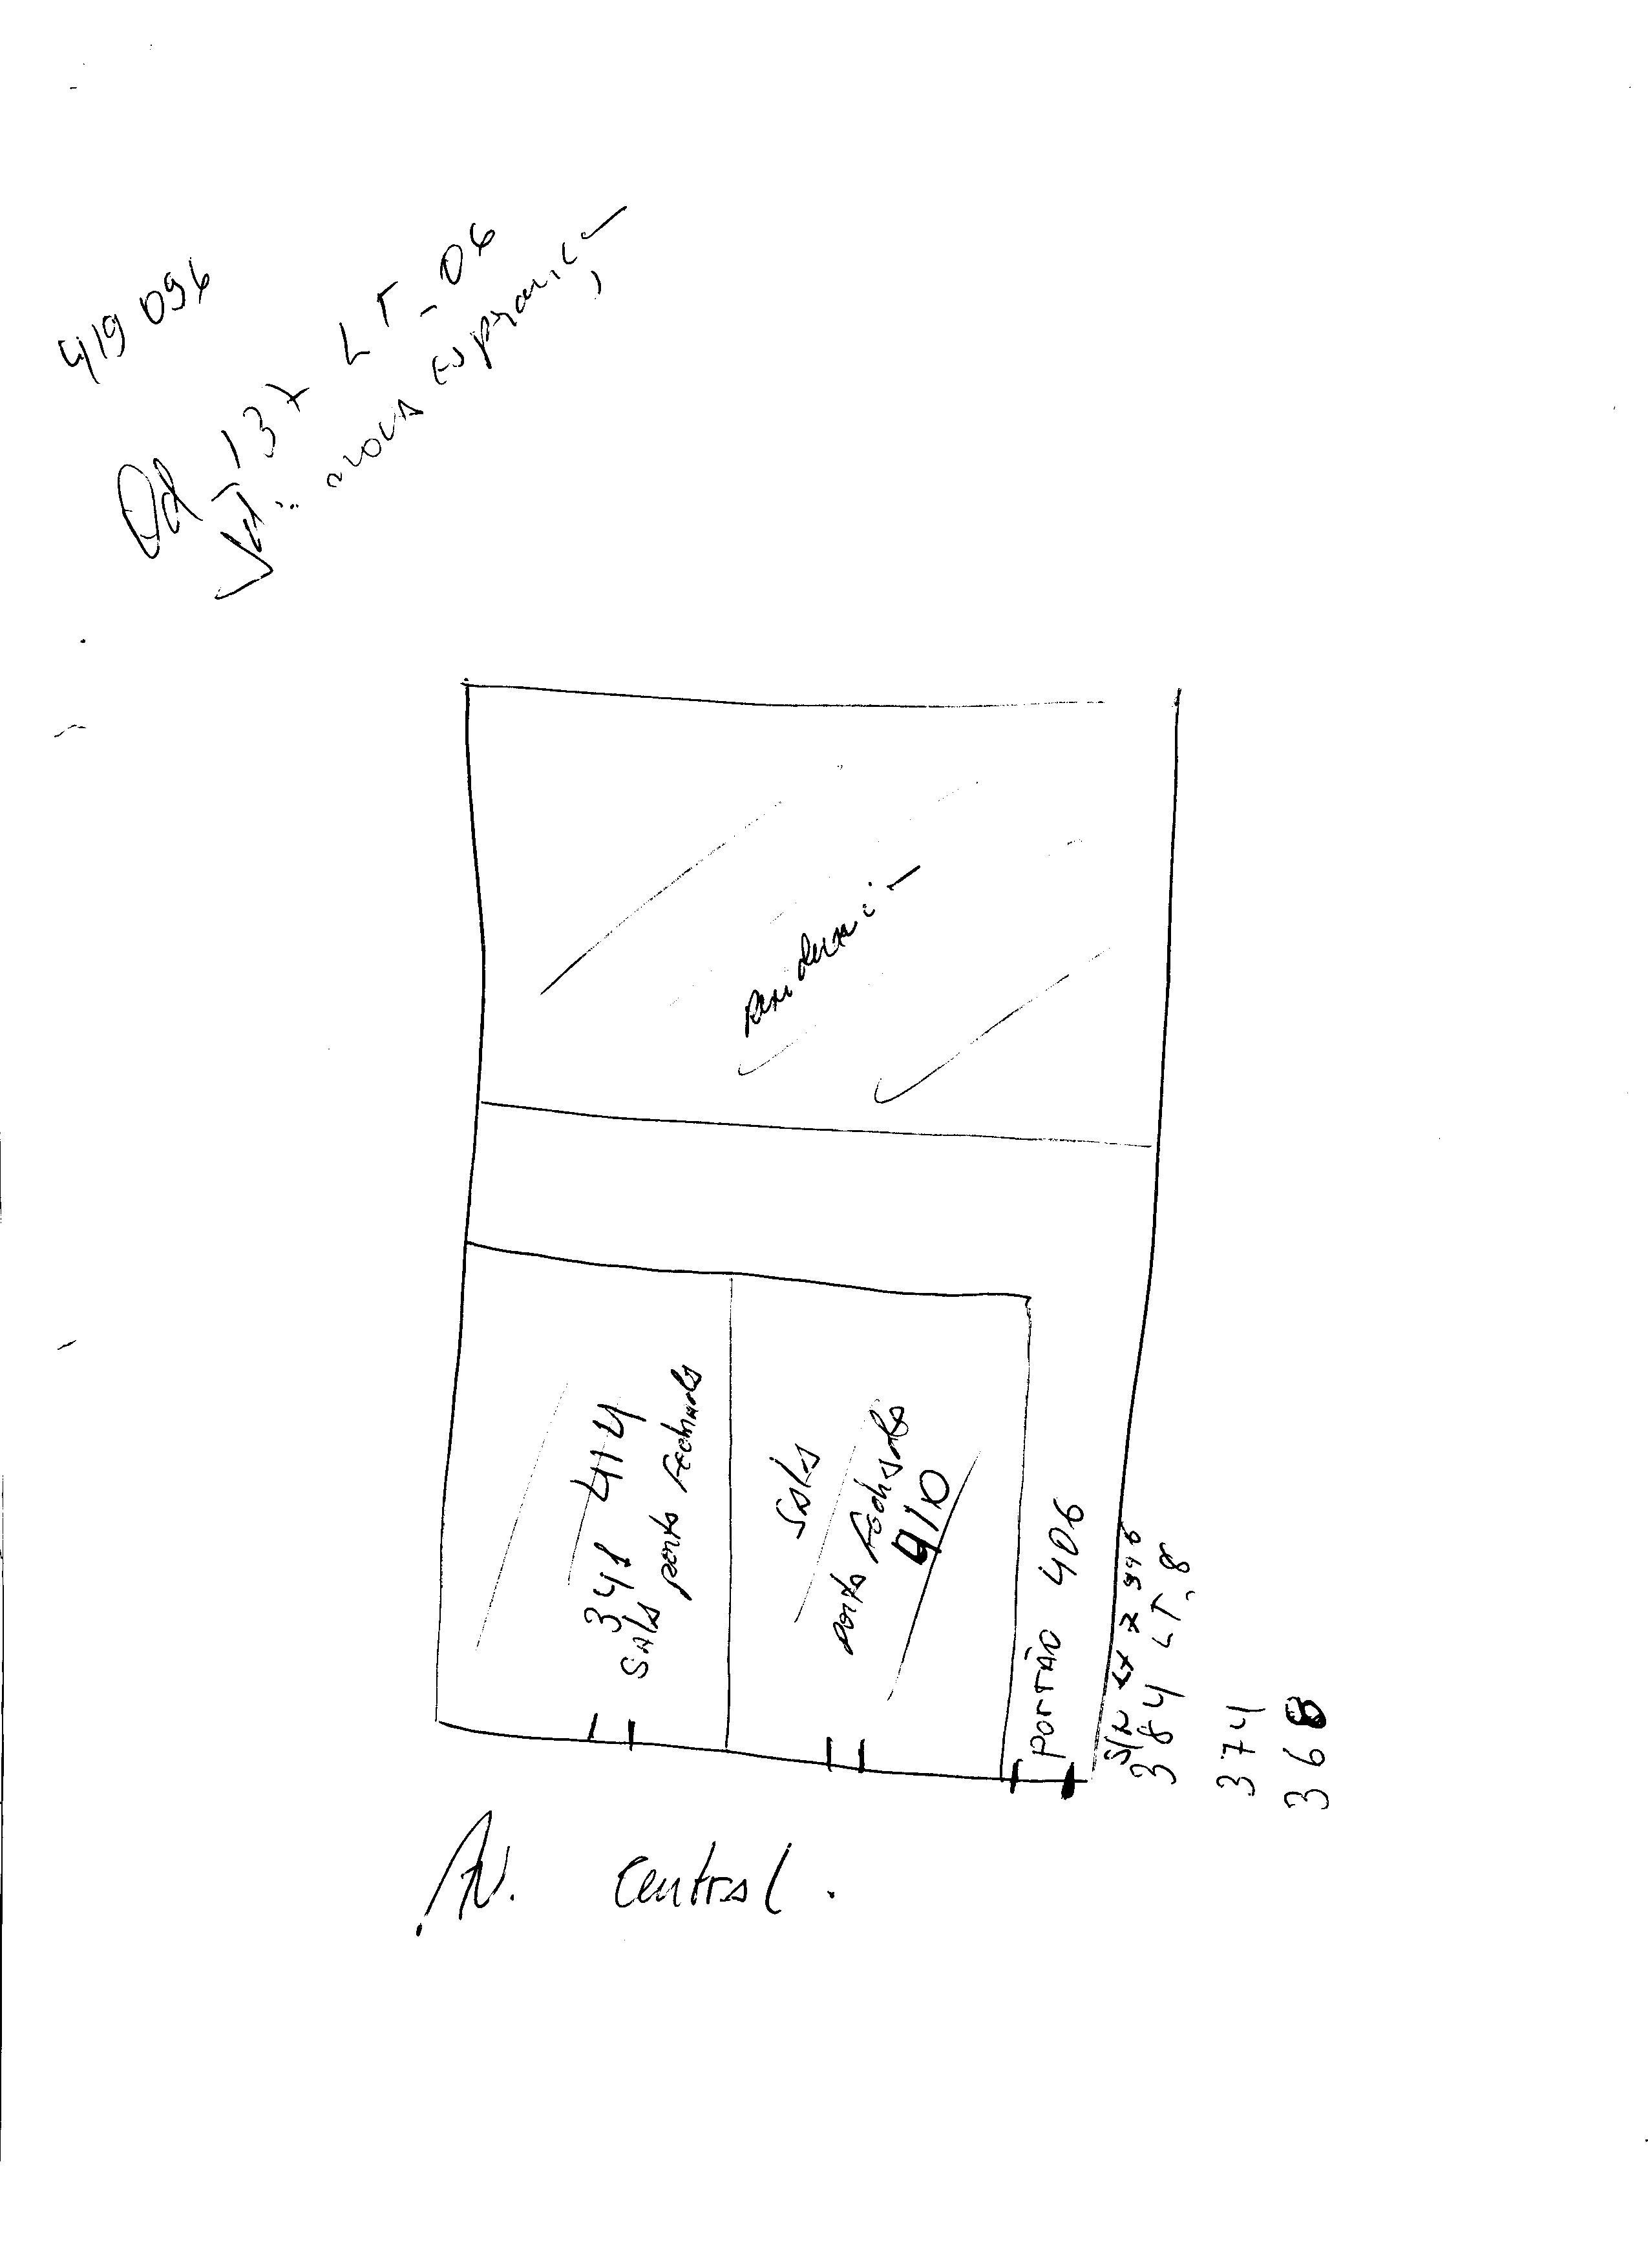 419 096
Qd 137 LT_06
Jd: nova esperança
residencia
348 414
sala porta fechada
sala
porta fechada
410
PORTÃO 406
S/N LT 7 396
384 LT. 8
374
368
Av. Central.